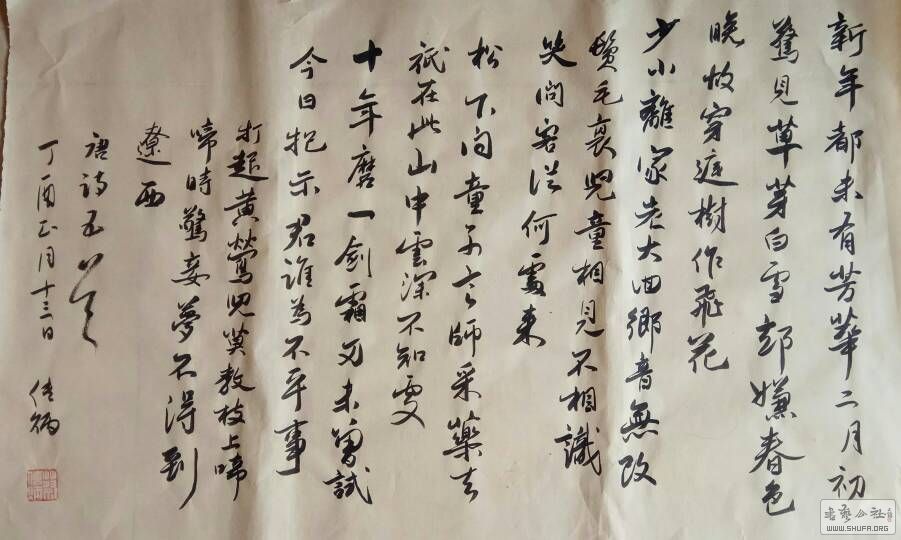 新年都未有芳華二月初
驚見草芽白雪却嫌春色
晚故穿庭樹作飛花
少小離家老大回鄉音無改
鬢毛衰兒童相見不相識
笑問客從何處来
松下问童子言師采藥去
祇在此山中雲深不知處
十年磨一劍霜刃未曾試
今日把示君誰為不平事
打起黄鶯兒莫教枝上啼
啼時驚妾夢不得到
遼西
唐詩五首
丁酉正月十三日
書藝公社
WWW.SHUFA.ORG